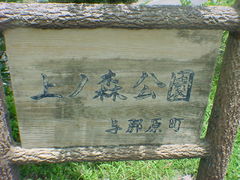 上ノ森公園
与那原町